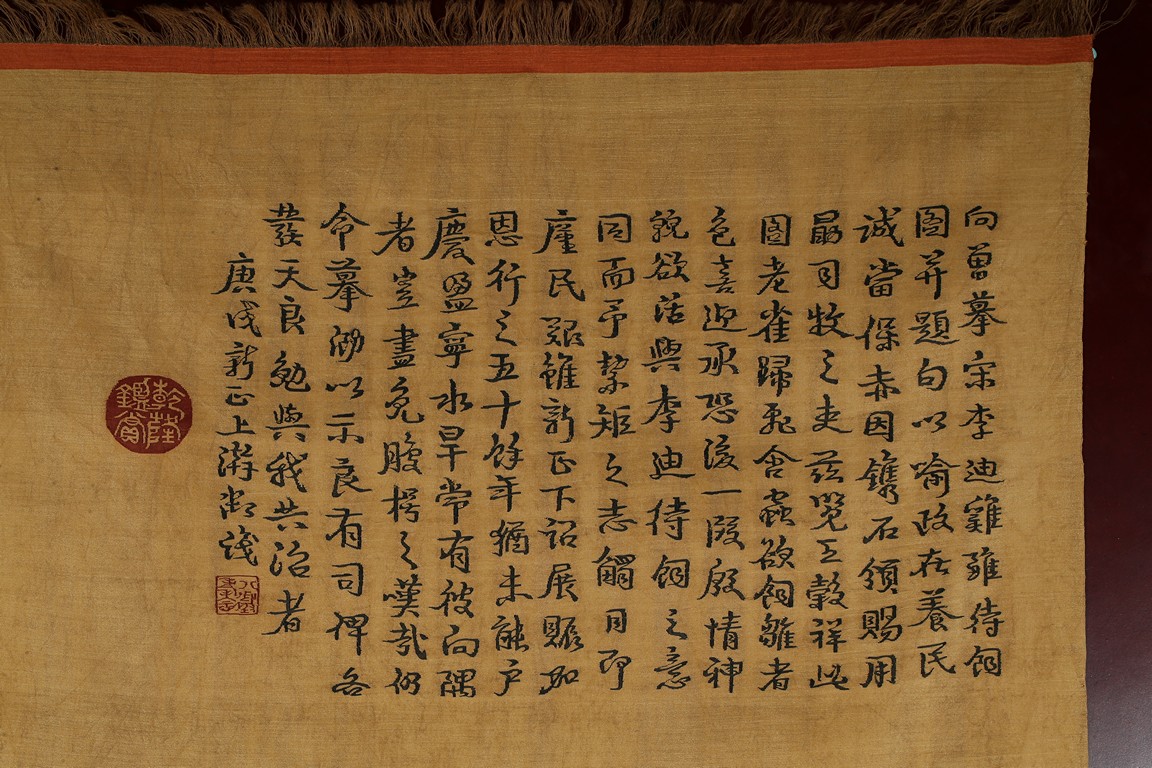 向曾摹宋李迪雞雛待飼
圖并題句以喻政在養民
誠當保赤因鐫石頒賜用
勗司牧之吏茲覽王穀祥此
圖老雀歸飛含蟲欲飼雛者
色喜迎承恐後一段殷情神
貌欲活與李迪待飼之意
同而予絜矩之志觸目即
廑民艱雖新正下詔展賑加
恩行之五十餘年猶未能户
慶盈寧水旱常有彼向隅
者豈盡免腹枵之嘆哉仍
命摹泐以示良有司俾各
發天良勉與我共治者
庚戌新正上澣御識
乾隆鑑賞